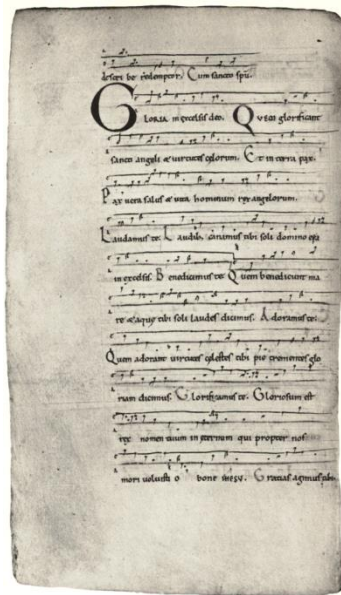 redemptor. Cum sancto spu.
GLORIA in excelsis deo. Quem glorificant
sancti angeli & virtutes celorum. Et in terra pax.
Pax vera salus & vita hominum rex angelorum.
Laudamus te. Laudib; tibi soli domino
in excelsis. Benedicimus te. Quem benedicunt ma
re &aque tibi soli laudes dicimus. Adoramus te:
Quem adorant virtutes celestes tibi pie trementes glo
riam dicimus. Glorificamus te. Gloriosum est
rex nomen tuum in eternum qui propter nos
mori voluisti o bone Gratias agimus tibi